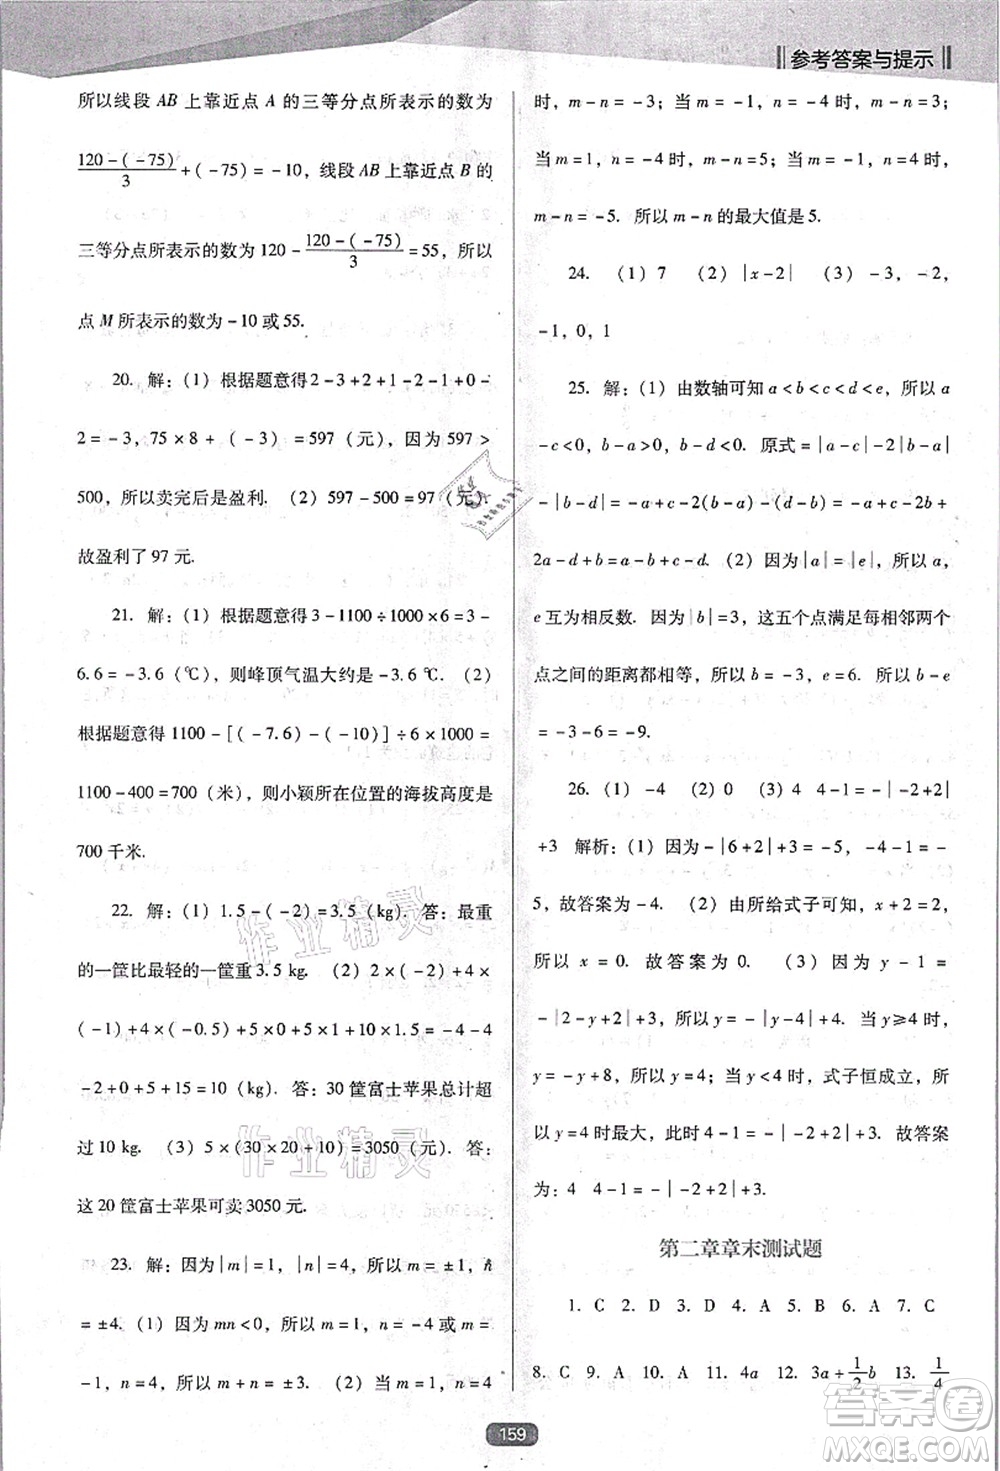 参考答案与提示
所以线段 AB 上靠近点 A 的三等分点所表示的数为
\frac{120-(-75)}{3}+(-75)=-10，线段 AB 上靠近点 B 的
三等分点所表示的数为 120-\frac{120-(-75)}{3}=55，所以
点 M 所表示的数为 -10 或 55.
20. 解：(1) 根据题意得 2-3+2+1-2-1+0-
2=-3，75×8+(-3)=597（元），因为 597>
500，所以卖完后是盈利. (2) 597-500=97（元），
故盈利了 97 元.
21. 解：(1) 根据题意得 3-1100÷1000×6=3-
6.6=-3.6（℃），则峰顶气温大约是 -3.6 ℃. (2)
根据题意得 1100-[(-7.6)-(-10)]÷6×1000=
1100-400=700（米），则小颖所在位置的海拔高度是
700 千米.
22. 解：(1) 1.5-(-2)=3.5（kg）. 答：最重
的一筐比最轻的一筐重 3.5 kg. (2) 2×(-2)+4×
(-1)+4×(-0.5)+5×0+5×1+10×1.5=-4-4
-2+0+5+15=10（kg）. 答：30 筐富士苹果总计超
过 10 kg. (3) 5×(30×20+10)=3050（元）. 答：
这 20 筐富士苹果可卖 3050 元.
23. 解：因为|m|=1，|n|=4，所以 m=±1，n
=±4. (1) 因为 mn<0，所以 m=1，n=-4 或 m=
-1，n=4，所以 m+n=±3. (2) 当 m=1，n=4
时，m-n=-3；当 m=-1，n=-4 时，m-n=3；
当 m=1，n=-4 时，m-n=5；当 m=-1，n=4 时，
m-n=-5. 所以 m-n 的最大值是 5.
24. (1) 7 (2) |x-2| (3) -3，-2，
-1，0，1
25. 解：(1) 由数轴可知 a<b<c<d<e，所以 a
-c<0，b-a>0，b-d<0. 原式=|a-c|-2|b-a|
-|b-d|=-a+c-2(b-a)-(d-b)=-a+c-2b+
2a-d+b=a-b+c-d. (2) 因为|a|=|e|，所以 a，
e 互为相反数. 因为|b|=3，这五个点满足每相邻两个
点之间的距离都相等，所以 b=-3，e=6. 所以 b-e
=-3-6=-9.
26. (1) -4 (2) 0 (3) 4 4-1=-|-2+2|
+3 解析：(1) 因为-|6+2|+3=-5，-4-1=-
5，故答案为-4. (2) 由所给式子可知，x+2=2，
所以 x=0. 故答案为 0. (3) 因为 y-1=
-|2-y+2|+3，所以 y=-|y-4|+4. 当 y≥4 时，
y=-y+8，所以 y=4；当 y<4 时，式子恒成立，所
以 y=4 时最大，此时 4-1=-|-2+2|+3. 故答案
为：4 4-1=-|-2+2|+3.
第二章章末测试题
1. C 2. D 3. D 4. A 5. B 6. A 7. C
8. C 9. A 10. A 11. 4a 12. 3a+\frac{1}{2}b 13. \frac{1}{4}
159
作业精灵
作业精灵
答案圈
MXQE.COM